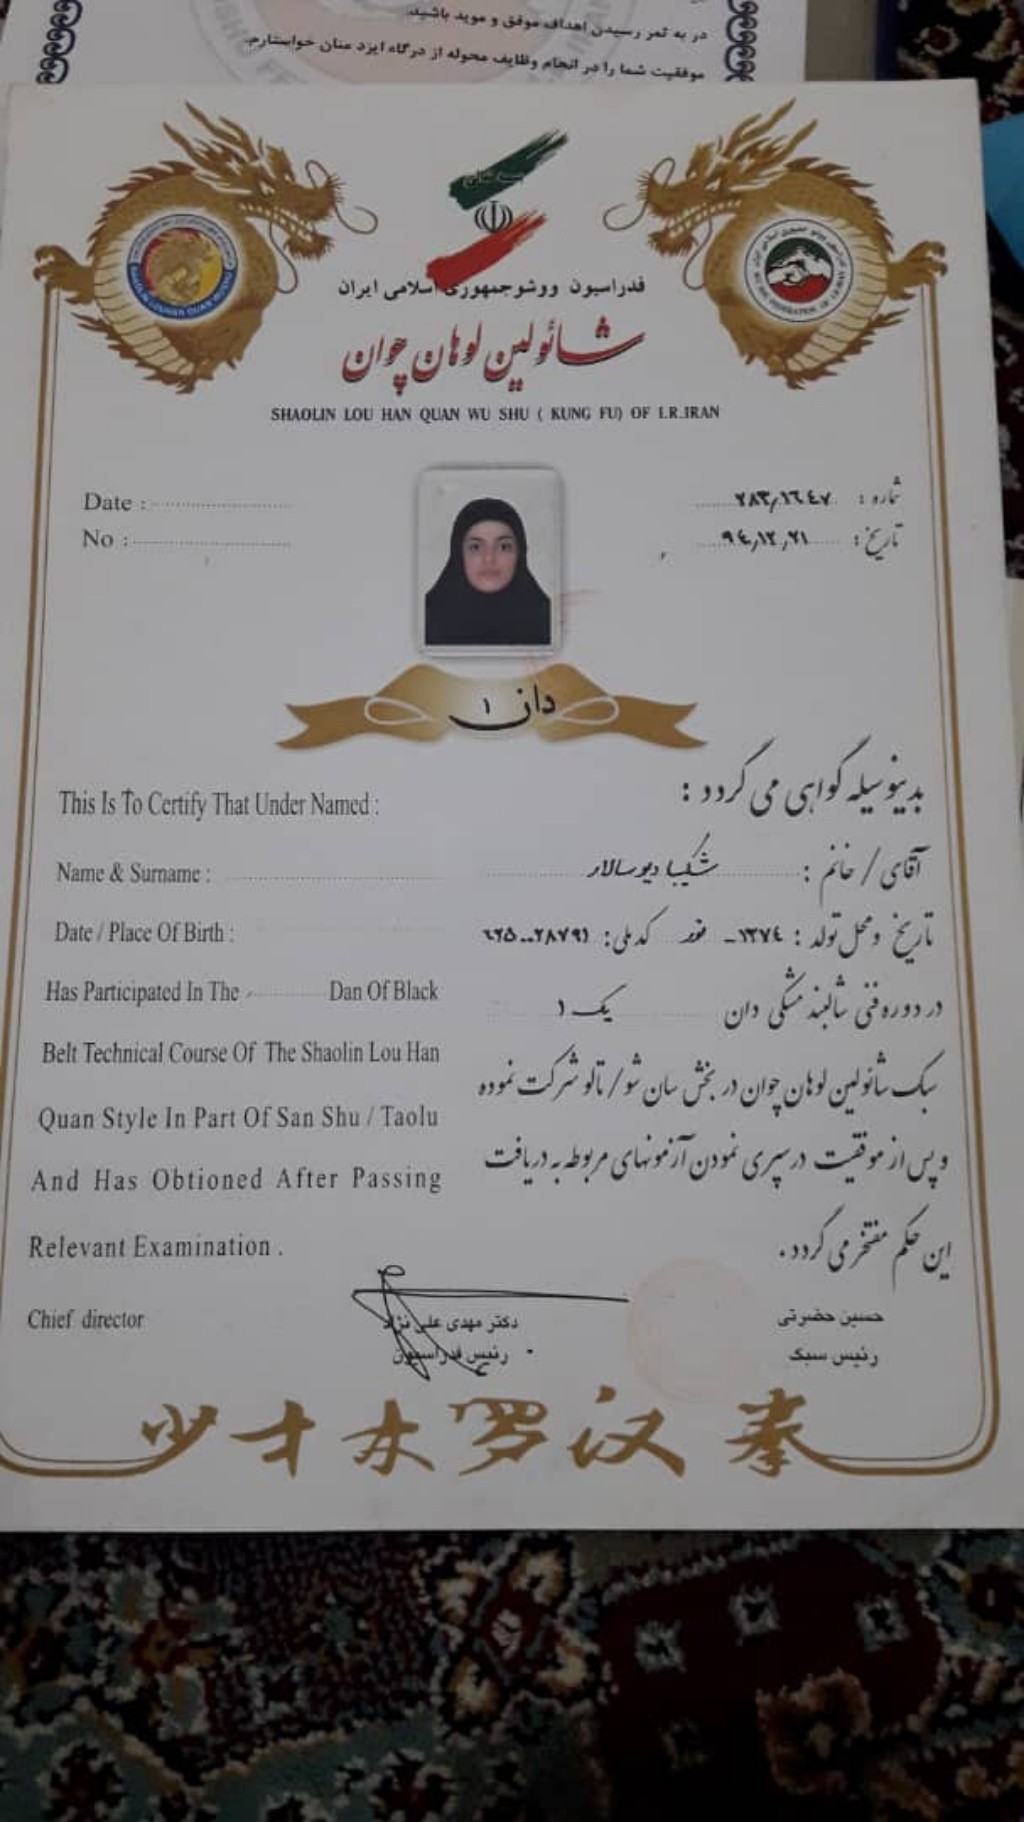 در به ثمر رسیدن اهداف موفق و موید باشید.
موفقیت شما را در انجام وظایف محوله از درگاه ایزد منان خواستارم.
فدراسیون ووشوجمهوری اسلامی ایران
شائولین لوهان چوان
SHAOLIN LOU HAN QUAN WU SHU ( KUNG FU) OF I.R.IRAN
Date :
No :
شماره : ۲۸۳/۱۶۴۷
تاریخ : ۹۴/۱۲/۲۱
دان ۱
This Is To Certify That Under Named :
بدینوسیله گواهی می گردد :
Name & Surname :
آقای / خانم : شکیبا دیوسالار
Date / Place Of Birth :
تاریخ و محل تولد : ۱۳۷۴- نور کد ملی : ۶۲۵۰۰۲۸۷۹۱
Has Participated In The Dan Of Black
در دوره فنی شالبند مشکی دان یک ۱
Belt Technical Course Of The Shaolin Lou Han
سبک شائولین لوهان چوان در بخش سان شو / تالو شرکت نموده
Quan Style In Part Of San Shu / Taolu
و پس از موفقیت در سپری نمودن آزمونهای مربوطه به دریافت
And Has Obtioned After Passing
این حکم مفتخر می گردد .
Relevant Examination .
Chief director
دکتر مهدی علی نژاد
رئیس فدراسیون
حسین حضرتی
رئیس سبک
少才木罗汉拳